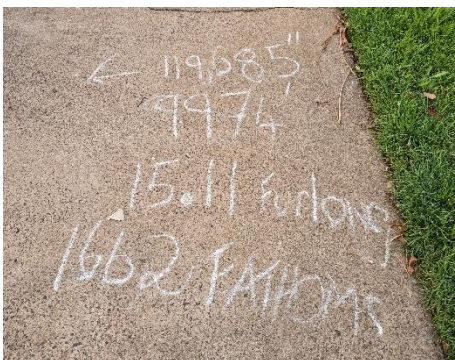 ← 119,685"
9974'
15.11 Furlongs
1662 FATHOMS